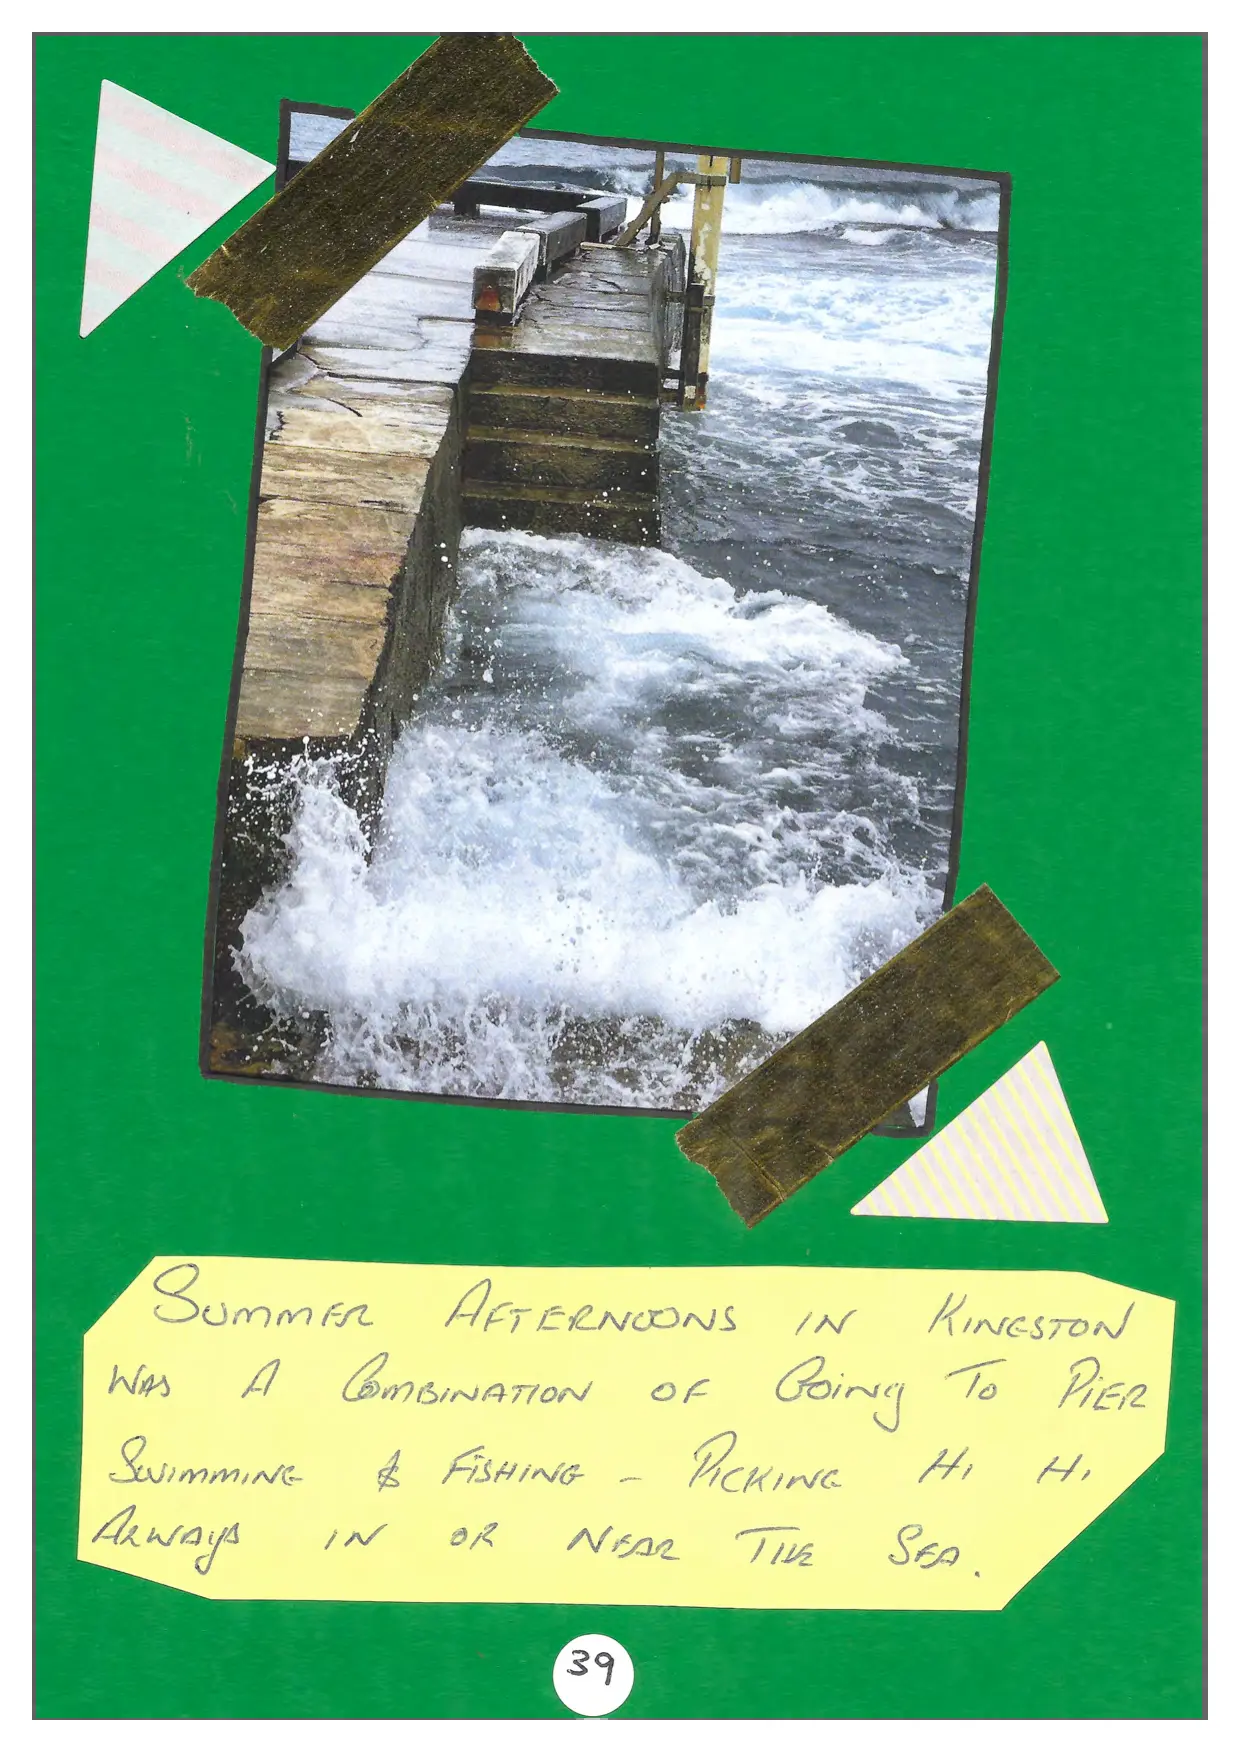 Summer Afternoons in Kingston
was a Combination of Going To Pier
Swimming & Fishing - Picking Hi Hi
Always in or near The Sea.
39